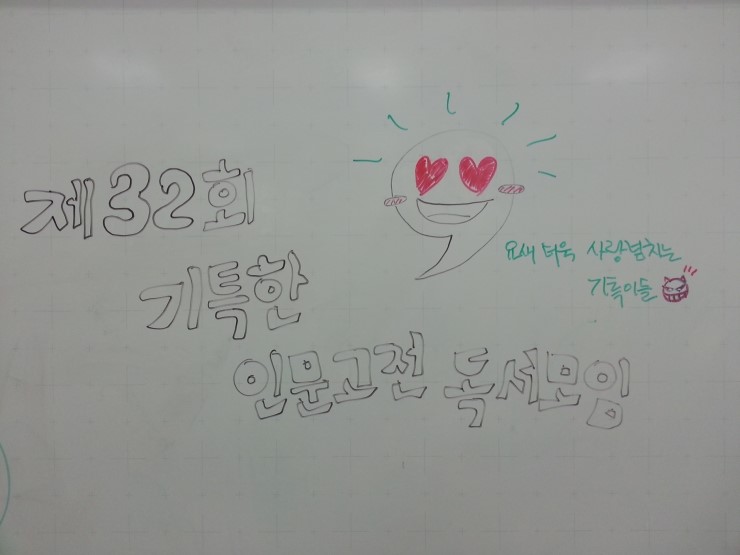 제32회
기특한
인문고전 독서모임
요새 더욱 사랑넘치는
기특이들